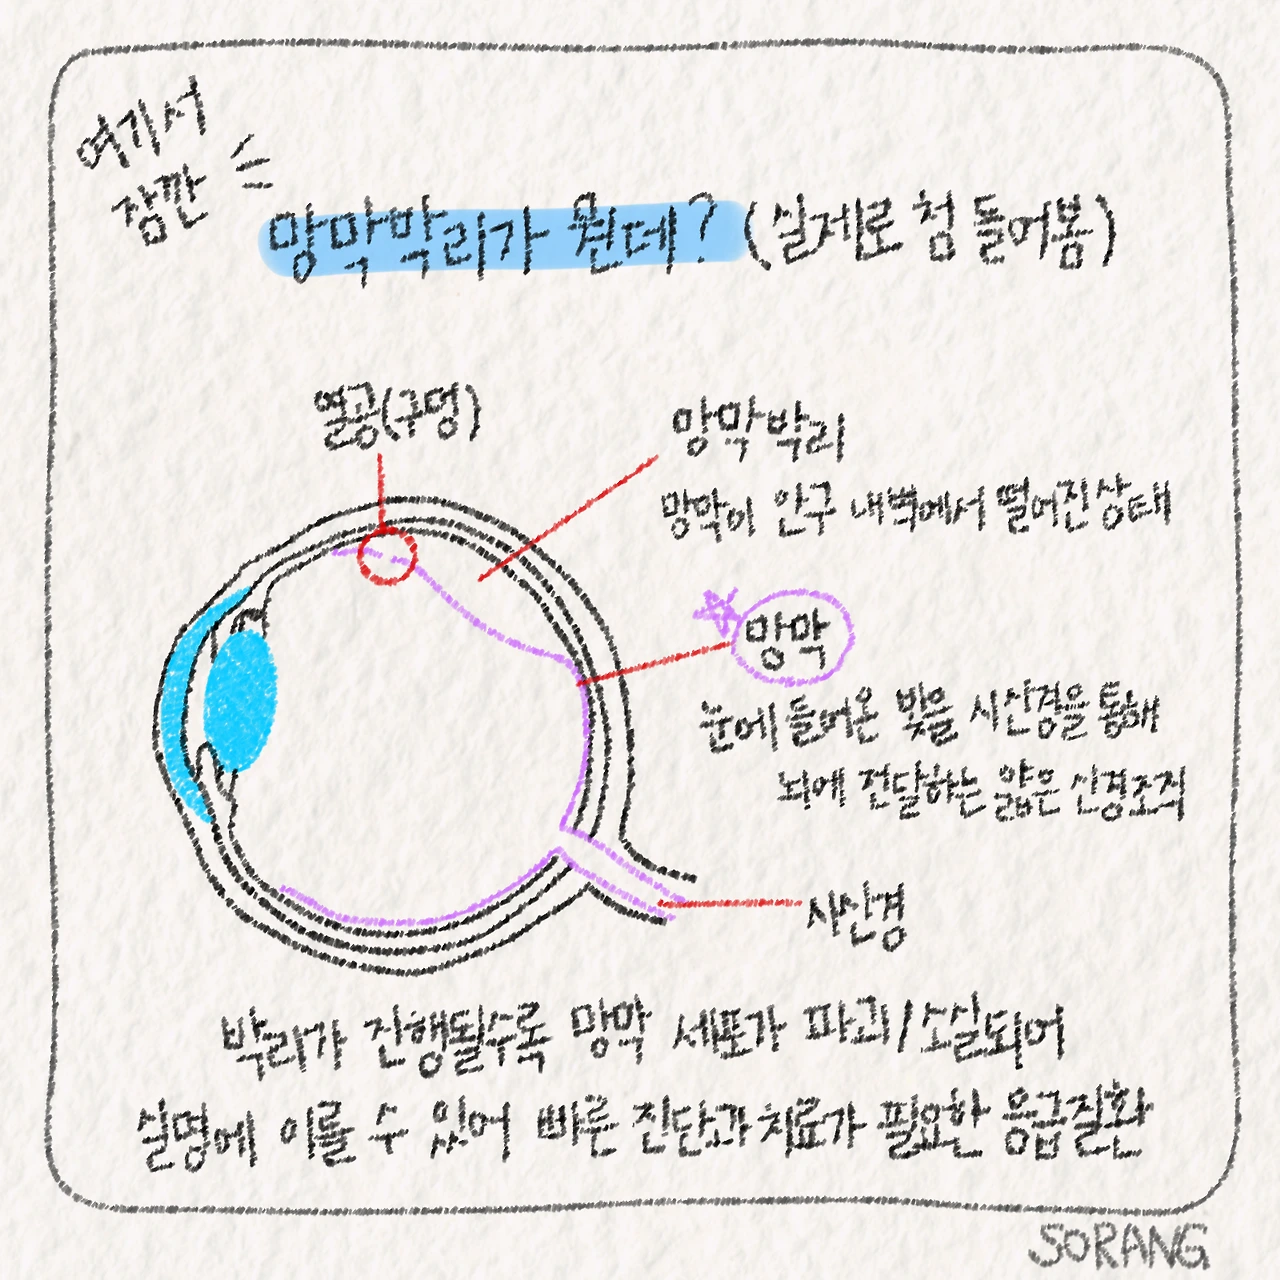 여기서
잠깐
망막박리가 뭔데? (실제로 첨 들어봄)
열공(구멍)
망막박리
망막이 안구 내벽에서 떨어진 상태
망막
눈에 들어온 빛을 시신경을 통해
뇌에 전달하는 얇은 신경조직
시신경
박리가 진행될수록 망막 세포가 파괴/소실되어
실명에 이를 수 있어 빠른 진단과 치료가 필요한 응급질환
SORANG